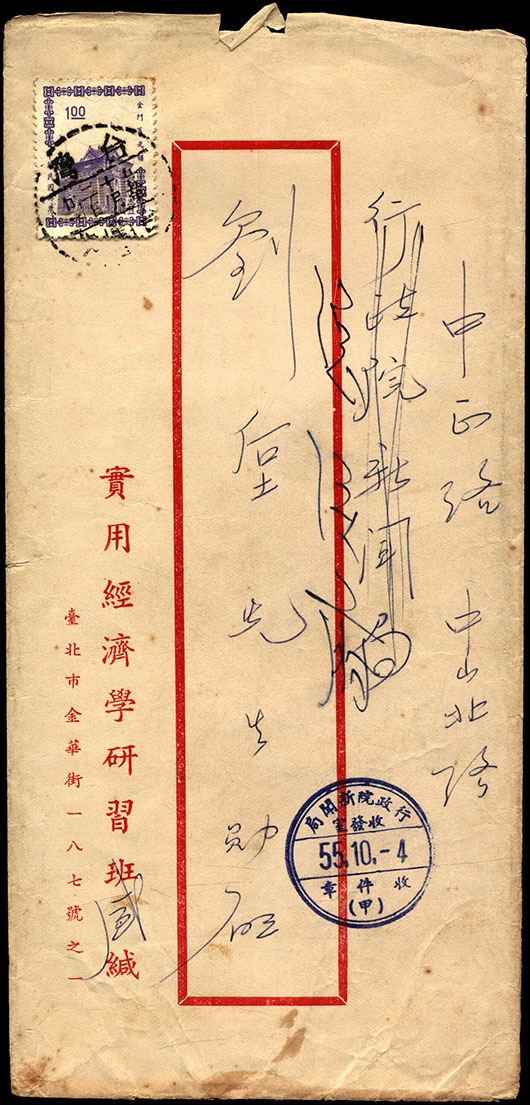 中正路 中山北路
行政院新聞局
劉垕先生 勛啟
行政院新聞局
收發室
55.10.-4
收件章
(甲)
實用經濟學研習班 緘
臺北市金華街一八七號之一
1.00
台灣